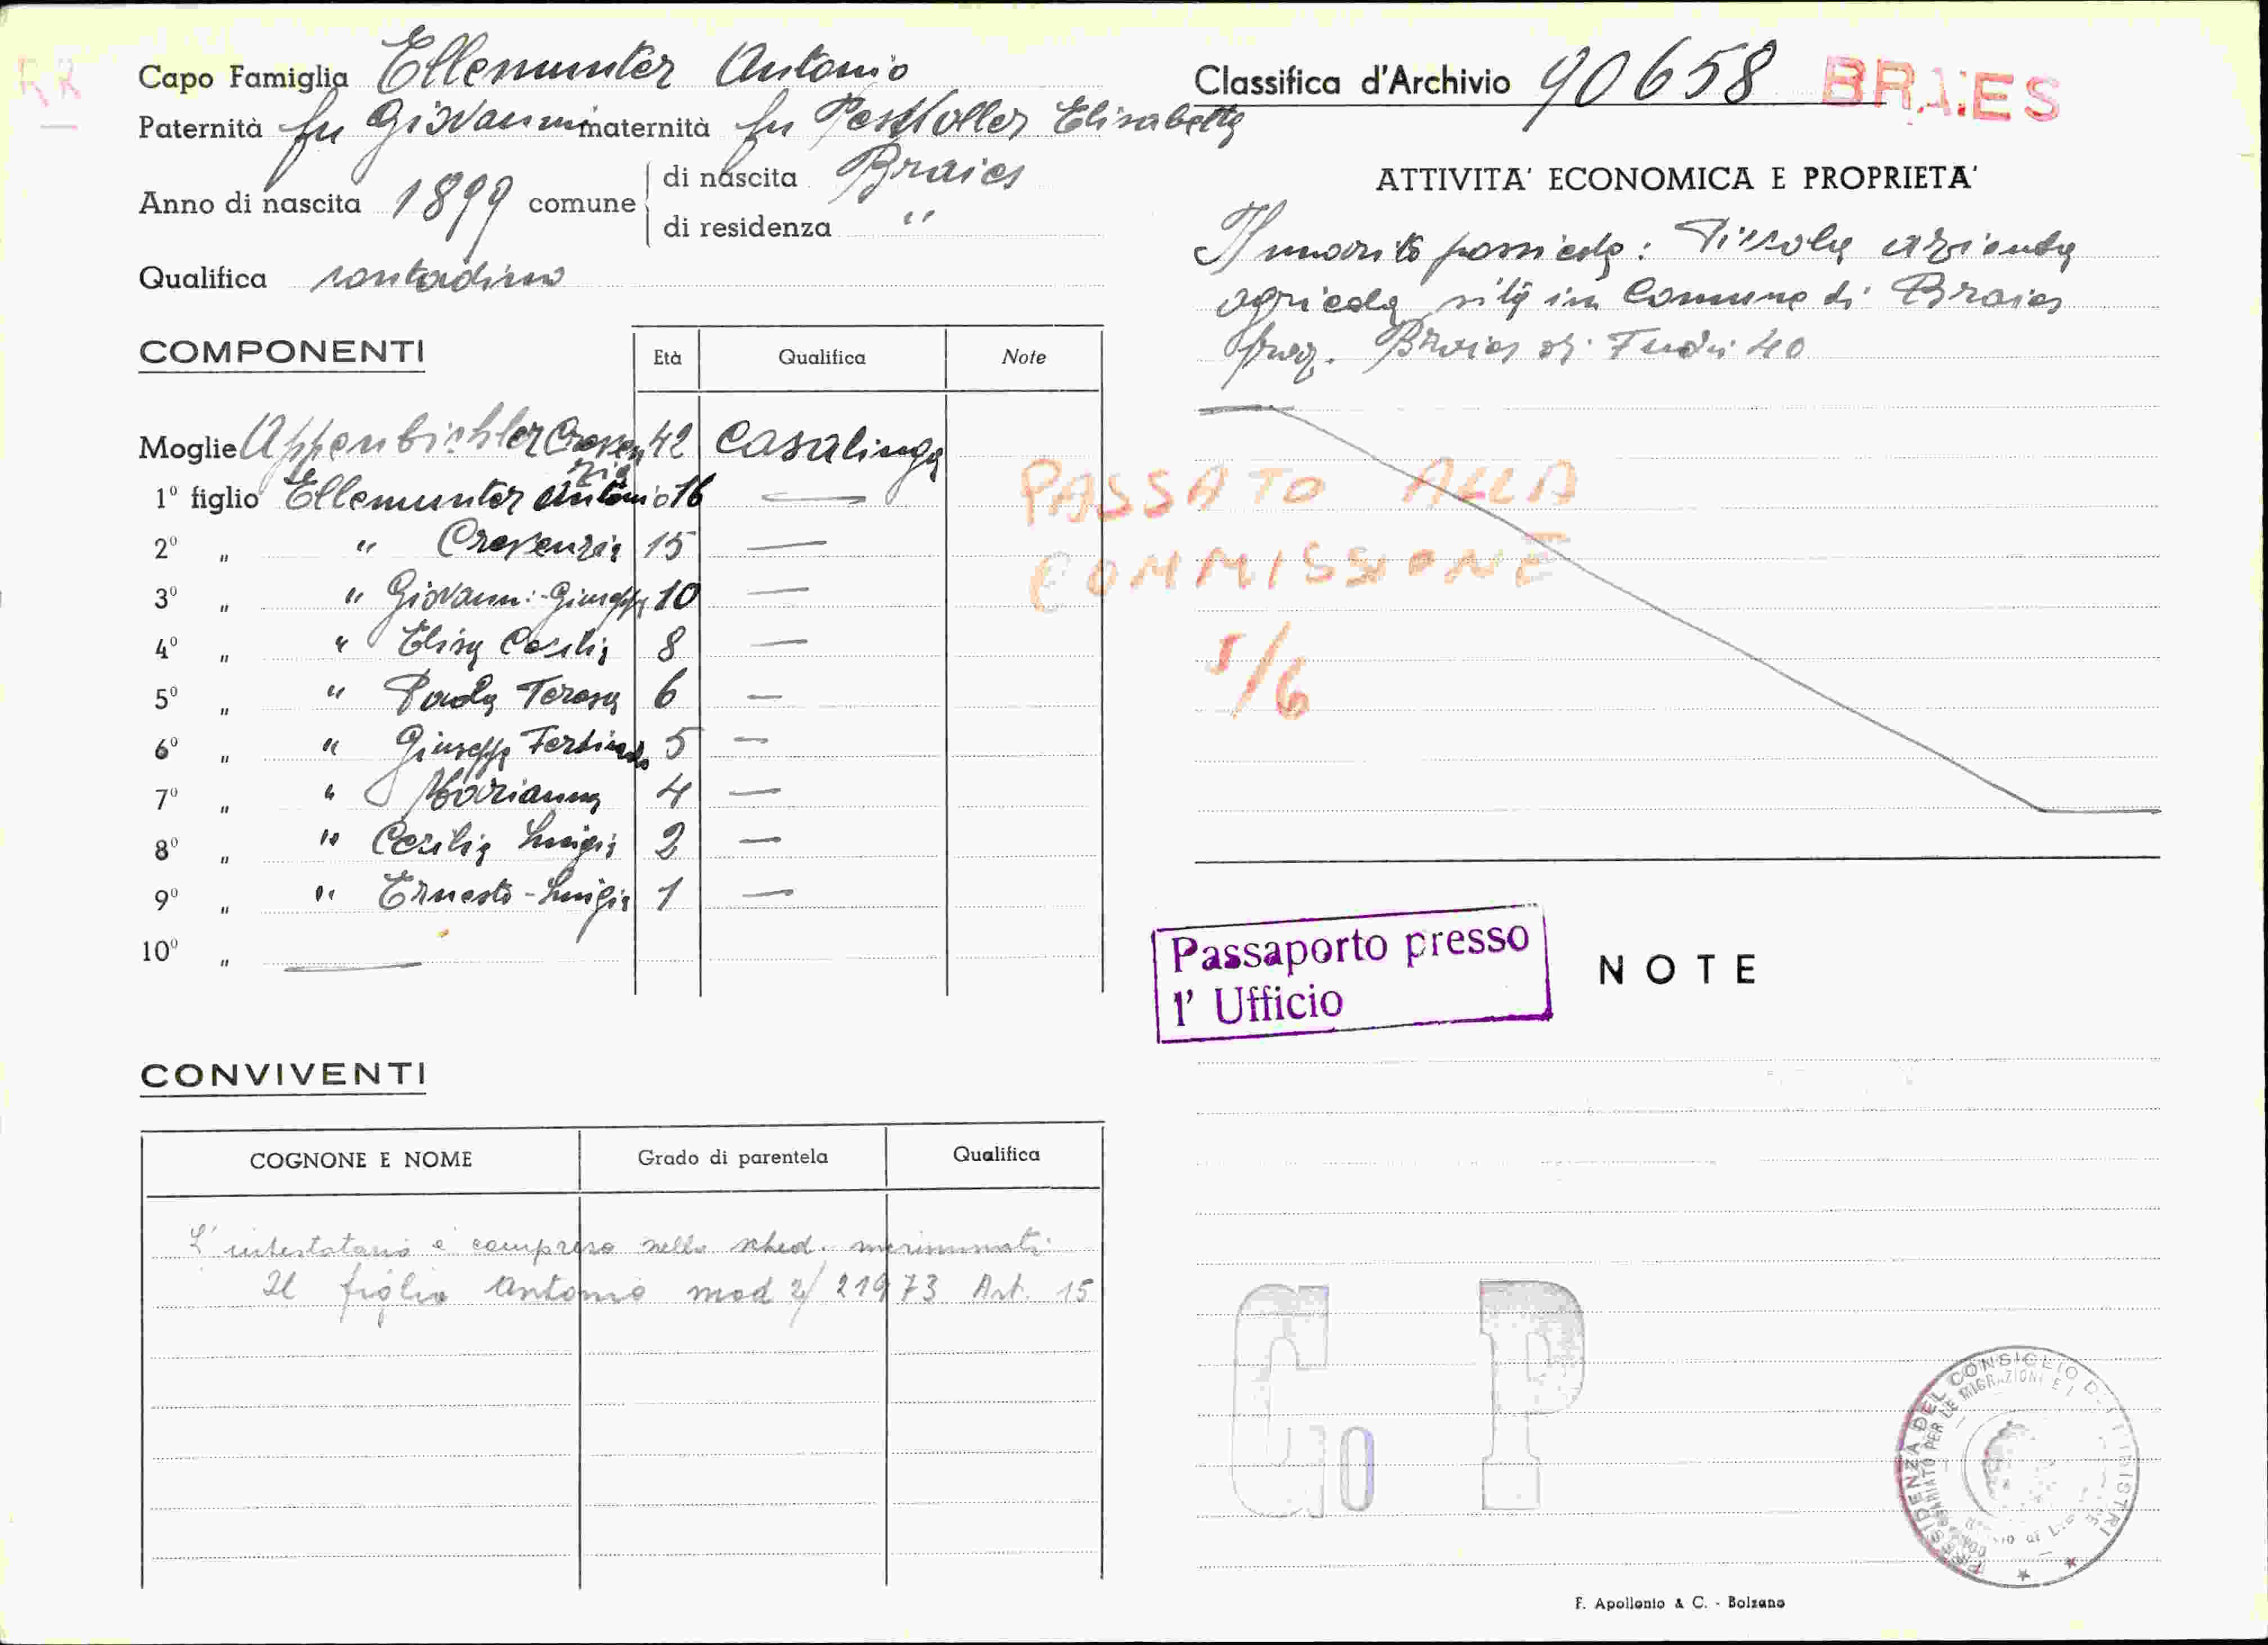 Capo Famiglia Ellemunter Antonio
Paternità fu Giovanni maternità fu Elisabetta
Anno di nascita 1899 comune di nascita Braies
di residenza "
Qualifica contadino
COMPONENTI Età Qualifica Note
Moglie Appenbichler Crescenzia 42 Casalinga
1º figlio Ellemunter Antonio 16 —
2º " " Crescenzia 15 —
3º " " Giovanni-Giuseppe 10 —
4º " " Elisa Cecilia 8 —
5º " " Paola Teresa 6 —
6º " " Giuseppe Ferdinando 5 —
7º " " Marianna 4 —
8º " " Cecilia Luigia 2 —
9º " " Ernesto-Luigia 1 —
10º " —
CONVIVENTI
COGNONE E NOME Grado di parentela Qualifica
L'intestatario è compreso nello sched.
Il figlio Antonio mod 2/ 21973 Art. 15
Classifica d'Archivio 90658 BRAIES
ATTIVITA' ECONOMICA E PROPRIETA'
Il marito possiede: Piccola azienda
agricola sita in Comune di Braies
fraz. Braies di 40
PASSATO ALLA
COMMISSIONE
5/6
Passaporto presso
l' Ufficio
NOTE
G P
PRESIDENZA DEL CONSIGLIO DEI MINISTRI
F. Apollonio & C. - Bolzano